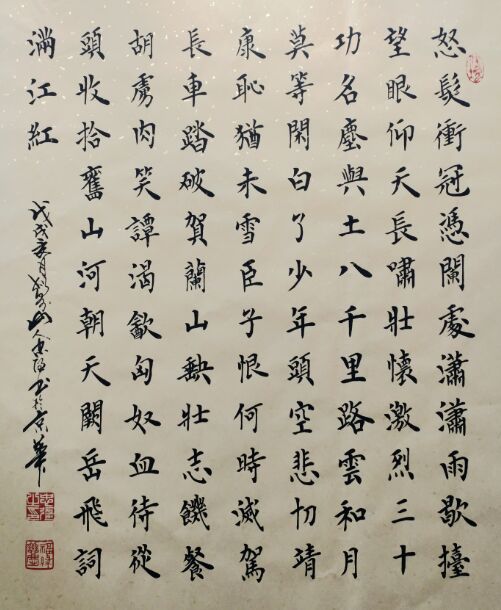 怒髮衝冠憑闌處瀟瀟雨歇擡
望眼仰天長嘯壯懷激烈三十
功名塵與土八千里路雲和月
莫等閑白了少年頭空悲切靖
康恥猶未雪臣子恨何時滅駕
長車踏破賀蘭山缺壯志饑餐
胡虜肉笑譚渴飲匈奴血待從
頭收拾舊山河朝天闕岳飛詞
滿江紅
戊戌月山人書於京華